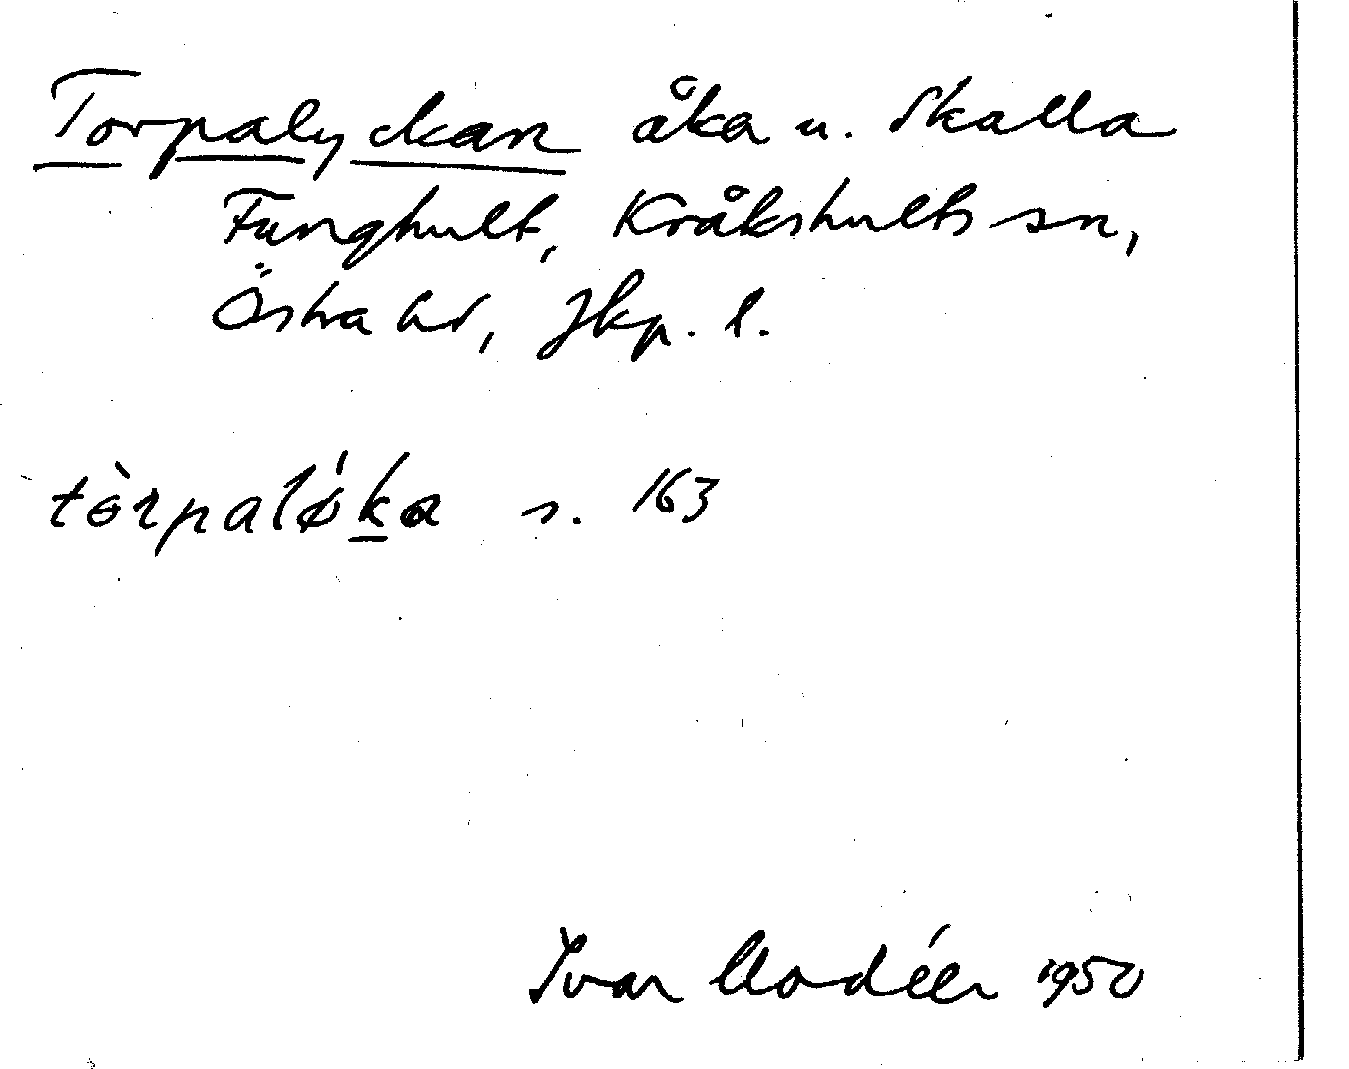 Torpalyckan åka u. Skalla
Funghult, Kråkshults sn,
Östra hd, Jkp. l.
tòrpalǿka s. 163
Ivar Modéer 1950